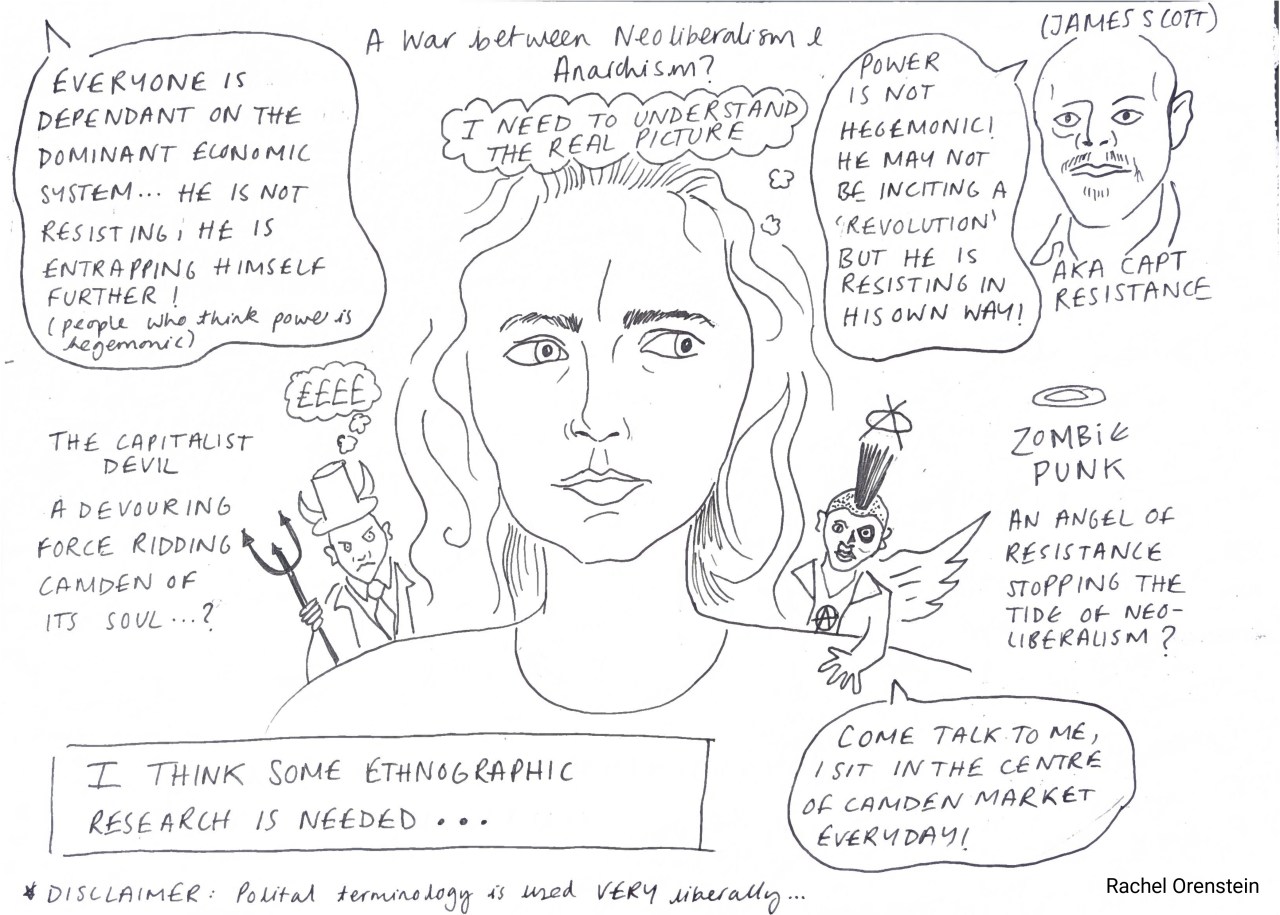 A War between Neoliberalism &
Anarchism?
EVERYONE IS
DEPENDANT ON THE
DOMINANT ECONOMIC
SYSTEM... HE IS NOT
RESISTING; HE IS
ENTRAPPING HIMSELF
FURTHER!
(people who think power is
hegemonic)
I NEED TO UNDERSTAND
THE REAL PICTURE
(JAMES SCOTT)
POWER
IS NOT
HEGEMONIC!
HE MAY NOT
BE INCITING A
'REVOLUTION'
BUT HE IS
RESISTING IN
HIS OWN WAY!
AKA CAPT
RESISTANCE
££££
THE CAPITALIST
DEVIL
A DEVOURING
FORCE RIDDING
CAMDEN OF
ITS SOUL...?
ZOMBIE
PUNK
AN ANGEL OF
RESISTANCE
STOPPING THE
TIDE OF NEO-
LIBERALISM?
A
COME TALK TO ME,
I SIT IN THE CENTRE
OF CAMDEN MARKET
EVERYDAY!
I THINK SOME ETHNOGRAPHIC
RESEARCH IS NEEDED...
* DISCLAIMER: Polital terminology is used VERY liberally...
Rachel Orenstein